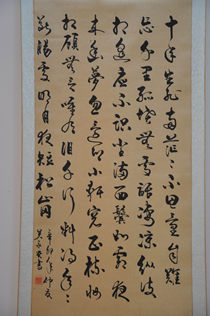 十年生死兩茫茫不思量自難
忘千里孤墳無處話淒涼縱使
相逢應不識塵滿面鬢如霜夜
來幽夢忽還鄉小軒窗正梳妝
相顧無言唯有淚千行料得年年
斷腸處明月夜短松岡